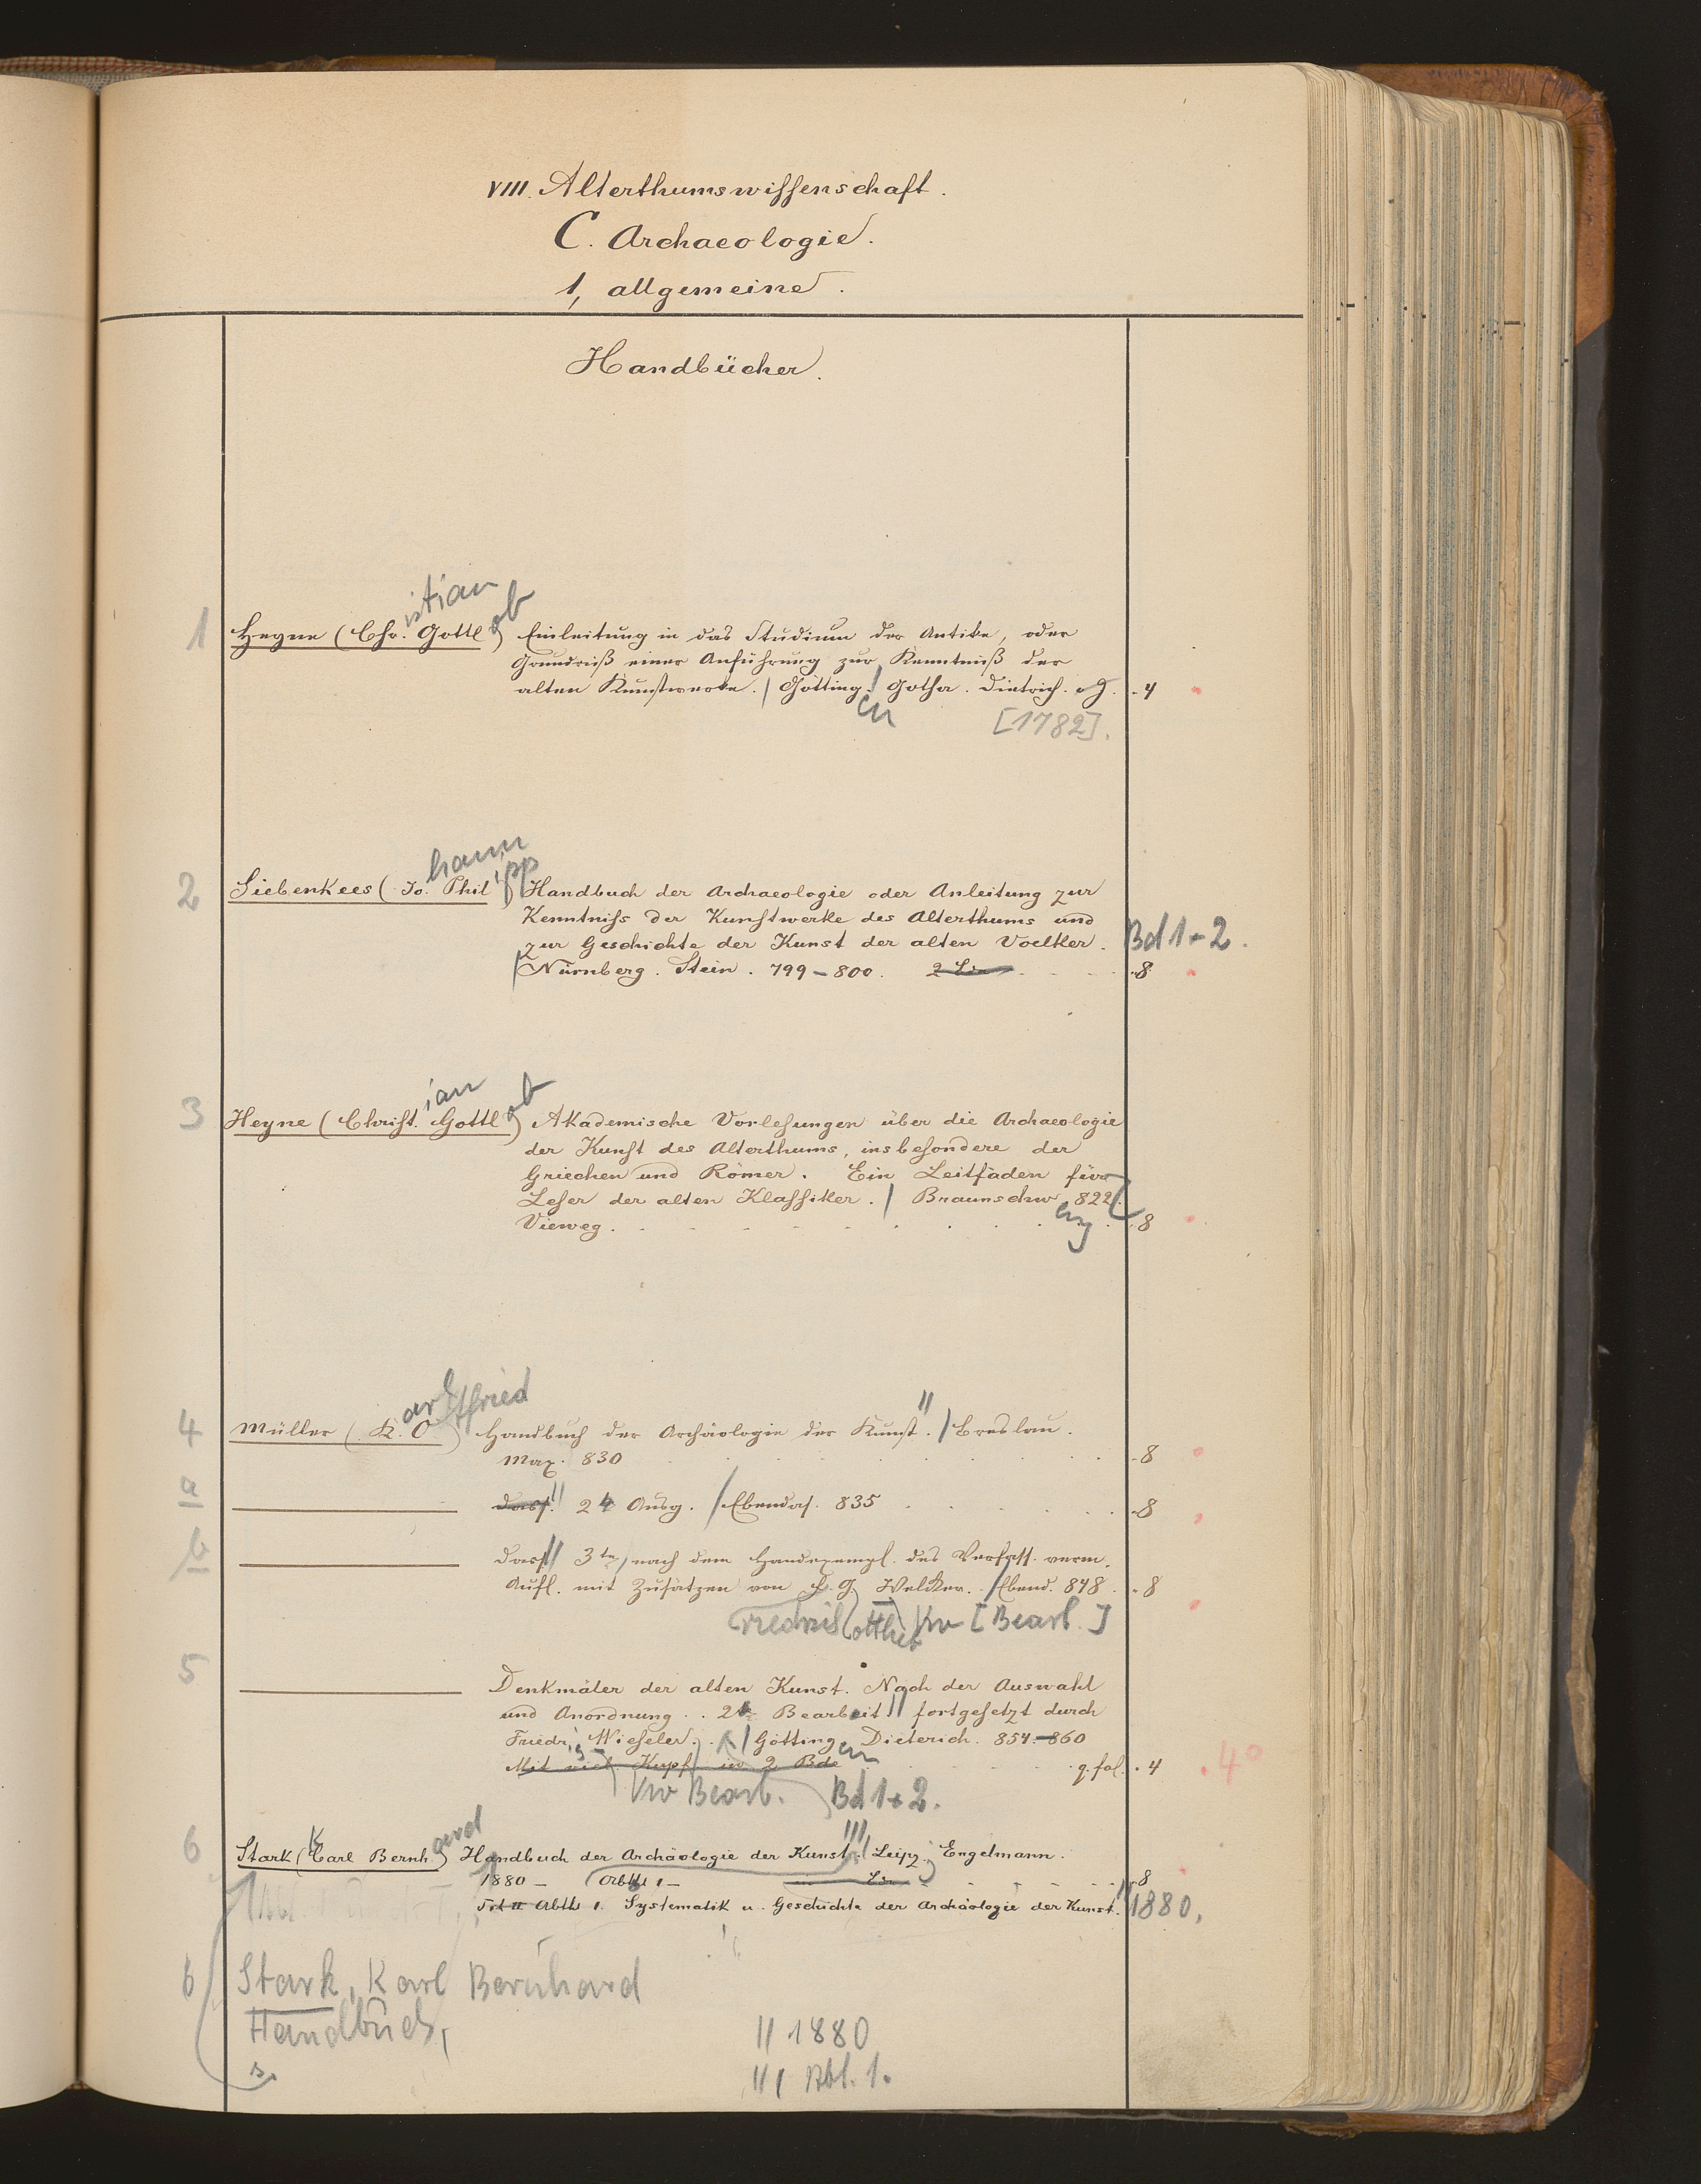 VIII. Alterthumswissenschaft.
C. Archaeologie.
1, allgemeine.
Handbücher.
istian
1 Heyne (Chr. Gottl ob) Einleitung in das Studium der Antike, oder
Grundriß einer Anführung zur Kenntniß der
alten Kunstwerke. / Götting. / Gotha. Dietrich. oJ. - 4
en [1782].
hann
2 Siebenkees (Jo. Phil ipp) Handbuch der Archaeologie oder Anleitung zur
Kenntniss der Kunstwerke des Alterthums und
zur Geschichte der Kunst der alten Voelker. Bd 1+2.
Nürnberg. Stein. 799-800. -8
ian
3 Heyne (Christ. Gottl ob) Akademische Vorlesungen über die Archaeologie
der Kunst des Alterthums, insbesondere der
Griechen und Römer. Ein Leitfaden für
Leser der alten Klassiker. / Braunschw 822.
eig
Vieweg. -8
arl tfried
4 Müller (K. O) Handbuch der Archäologie der Kunst. // / Breslau.
Max. 830 -8
a dass. // 2 Ausg. / Ebendas. 835 -8
b dass // 3te, nach dem Handexempl. des Verfass. verm.
Aufl. mit Zusätzen von F. G. Welcker. / Ebend. 848. -8
riedrich ottlieb Vw [Bearb.]
5 Denkmäler der alten Kunst. Nach der Auswahl
und Anordnung .. 2te Bearbeit // fortgesetzt durch
Friedr. Wieseler. / Götting. Dieterich. 854-860
en
Mit viel Kupf. in 2 Bde q. fol. . 4 . 4°
Vw Bearb. Bd 1+2.
6 Stark (Carl Bernh. ard) Handbuch der Archäologie der Kunst. /// Leipz. Engelmann.
K
1880 - Abth 1 - -8
Abth 1. Systematik u. Geschichte der Archäologie der Kunst. // 1880.
6 Stark, Karl Bernhard
Handbuch,
// 1880
/// Abt. 1.